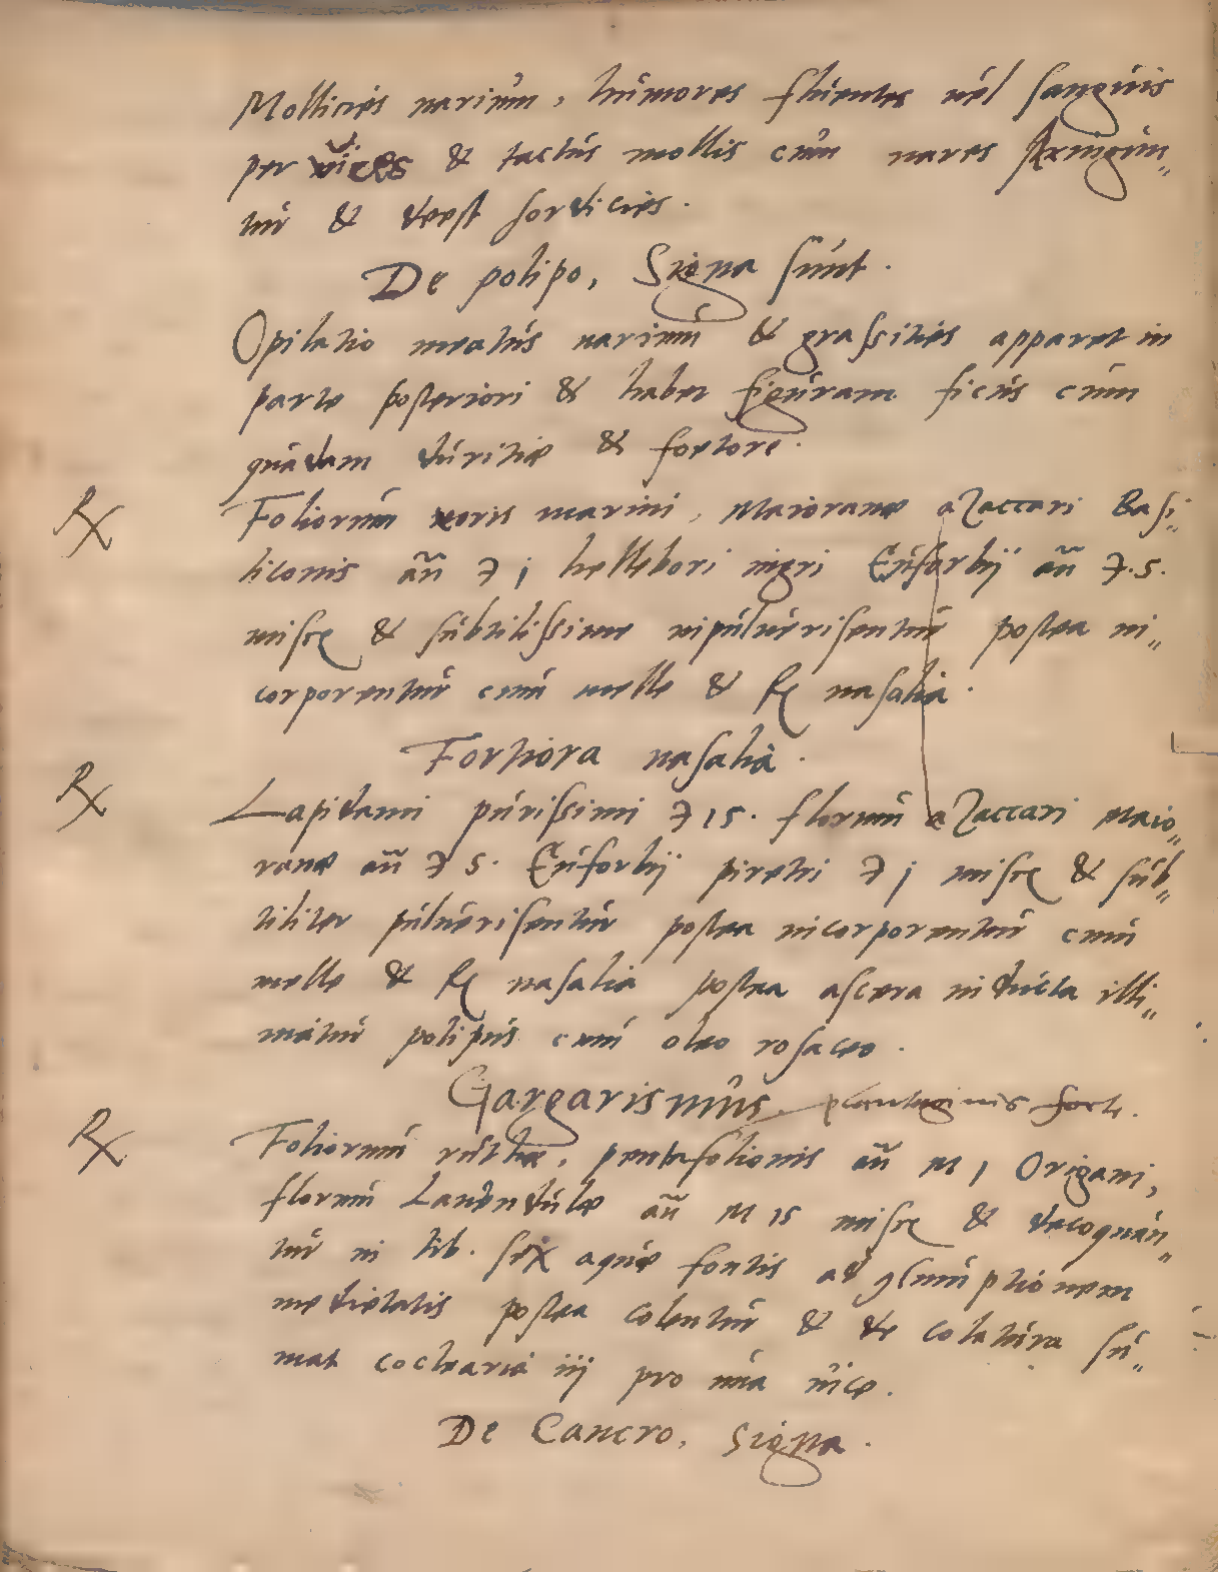 Mollicies narium, humores fluentes uel sanguis
per uices & tactus mollis cum nares stringun„
tur & deest sordicies.
De polipo, Signa sunt.
Opilatio meatus narium & grassities apparet in
parte posteriori & habet figuram ficus cum
quadam duritie & foetore.
℞ Foliorum roris marini, Maioranæ azaccari Basi„
liconis añ ʒ j hellebori nigri Euforbij añ ʒ.s.
misce & subtilissime inpuluerisentur postea in„
corporentur cum melle & fç nasalia.
Fortiora nasalia.
℞ Lapidami purissimi ʒ 1s. florum azaccari Maio„
ranæ añ ʒ s. Euforbij piretri ʒ j misce & sub„
tiliter puluerisentur postea incorporentur cum
melle & fç nasalia postea ascera inducta illi„
niatur polipus cum oleo rosaceo.
Gargarismus. plantaginis forte.
℞ Foliorum ruthæ, pentafolionis añ M j Origani,
florum Lauendulæ añ M 1s misce & decoquan„
tur in lib. sex aquæ fontis ad ꝯsumptionem
medietatis postea colentur & de colatura su„
mat coclearia iij pro una uice.
De Cancro, Signa.